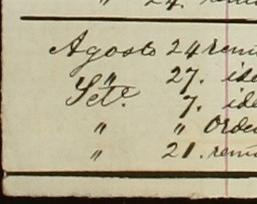 " 24.
Agosto 24 rem
" 27. ide
Sete. 7. ide
" " Orde
" 21. rem